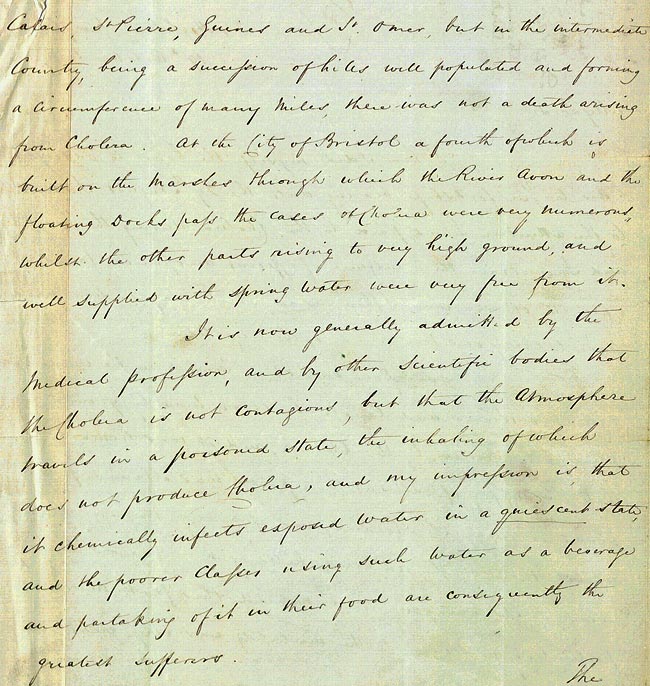 Calais, St Pierre, Guines and St. Omer, but in the intermediate
Country, being a succession of hills well populated and forming
a circumference of many miles, there was not a death arising
from Cholera. At the City of Bristol a fourth of which is
built on the Marshes through which the River Avon and the
floating Docks pass the cases of Cholera were very numerous,
whilst the other parts rising to very high ground, and
well supplied with spring water were very free from it.
It is now generally admitted by the
Medical profession, and by other Scientific bodies that
the Cholera is not contagious, but that the Atmosphere
travels in a poisoned state, the inhaling of which
does not produce Cholera, and my impression is that
it chemically infects exposed water in a quiescent state,
and the poorer Classes using such water as a beverage
and partaking of it in their food are consequently the
greatest sufferers.
The